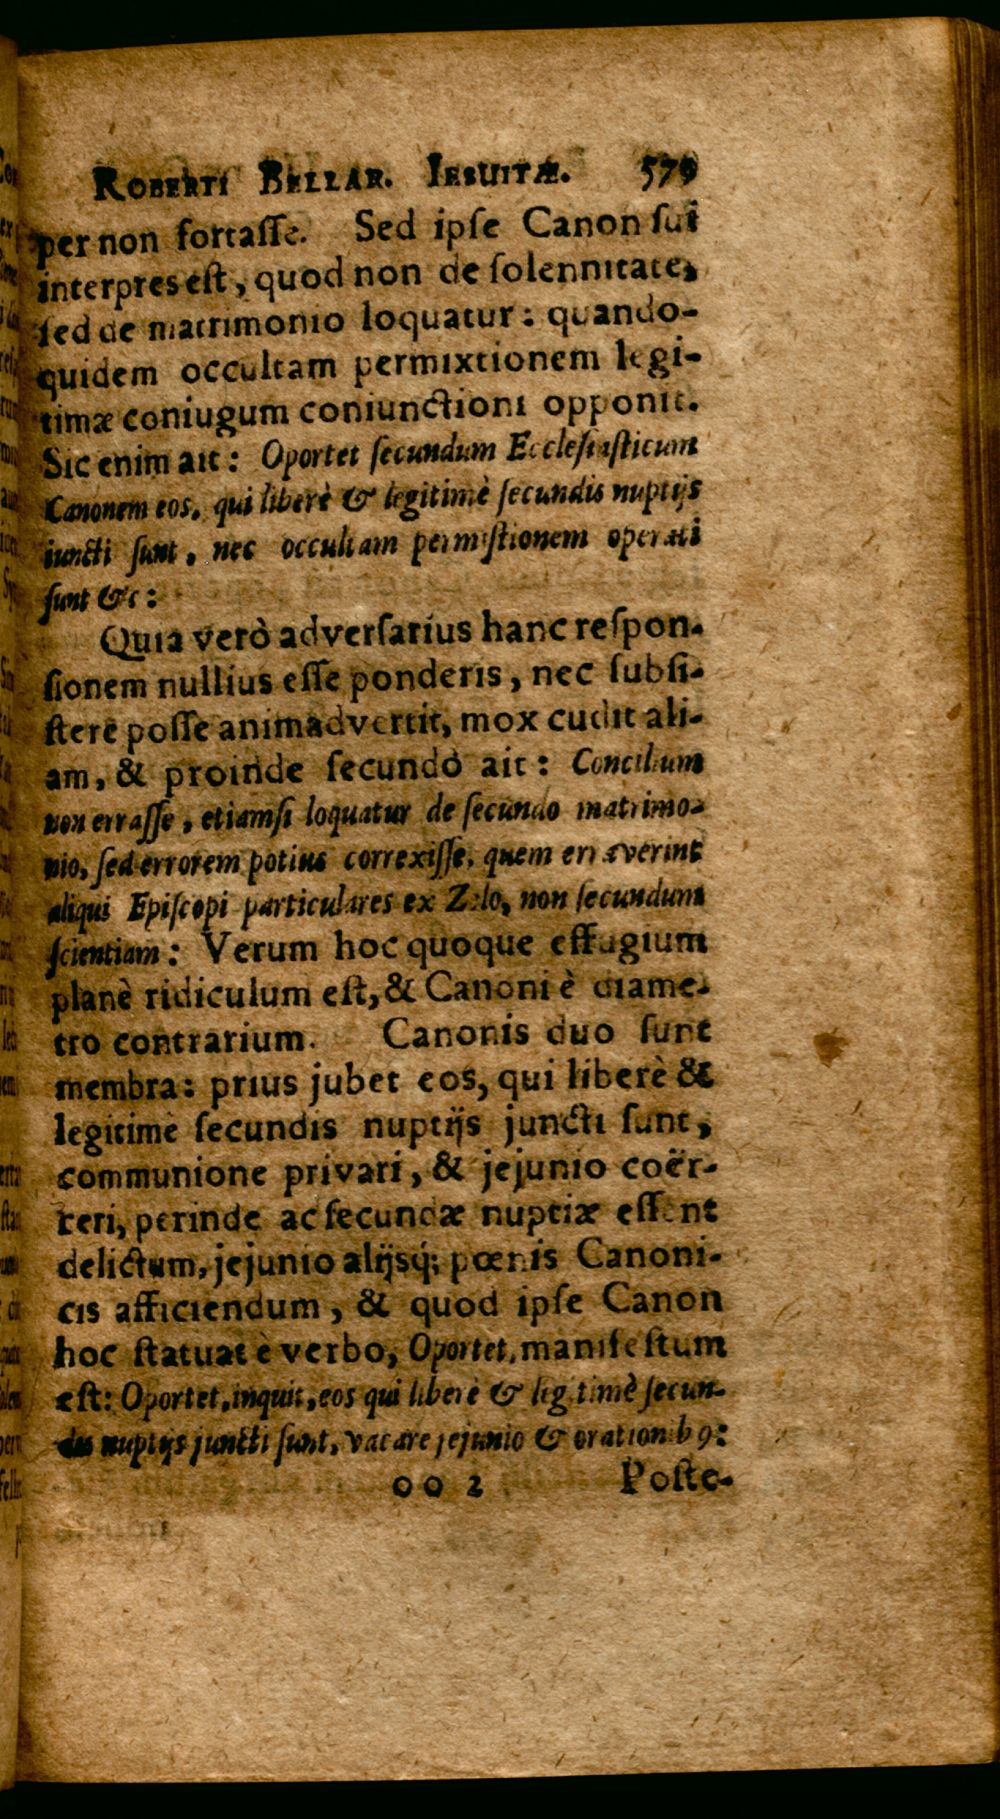 ROBERTI BELLAR. IESUITÆ. 579
per non fortaſſe. Sed ipſe Canon ſui
interpres eſt, quod non de ſolennitate,
ſed de matrimonio loquatur: quando-
quidem occultam permixtionem legi-
timæ coniugum coniunctioni opponit.
Sic enim ait: Oportet ſecundum Eccleſiaſticum
Canonem eos, qui liberè & legitimè ſecundis nuptijs
iuncti ſunt, nec occultam permiſtionem operati
ſunt &c:
Quia verò adverſarius hanc reſpon-
ſionem nullius eſſe ponderis, nec ſubſi-
ſtere poſſe animadvertit, mox cudit ali-
am, & proinde ſecundò ait: Concilium
non erraſſe, etiamſi loquatur de ſecundo matrimo-
nio, ſed errorem potius correxiſſe, quem erraverint
aliqui Epiſcopi particulares ex Zelo, non ſecundum
ſcientiam: Verum hoc quoque effugium
planè ridiculum eſt, & Canoni è diame-
tro contrarium. Canonis duo ſunt
membra: prius jubet eos, qui liberè &
legitimè ſecundis nuptijs juncti ſunt,
communione privari, & jejunio coër-
ceri, perinde ac ſecundæ nuptiæ eſſent
delictum, jejunio alijsq́; pœnis Canoni-
cis afficiendum, & quod ipſe Canon
hoc ſtatuat è verbo, Oportet, manifeſtum
eſt: Oportet, inquit, eos qui liberè & legitimè ſecun-
dis nuptijs juncti ſunt, vacare jejunio & orationib9:
oo 2 Poſte-